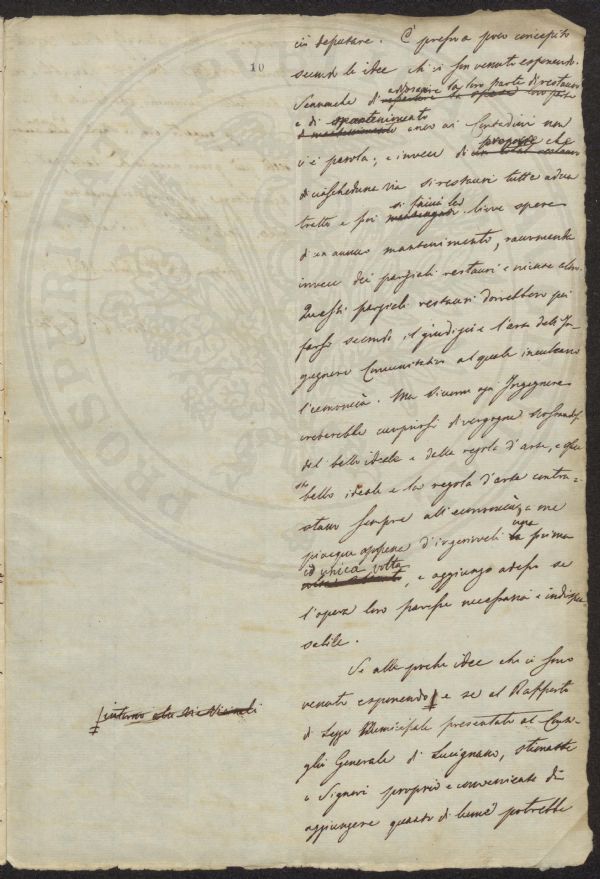 10
ciò deputare. È presso a poco concepito
secondo le idee che vi son venuto esponendo.
Senonchè d'addossare la loro parte di restauro
e di mantenimento anco ai Contadini non
vi è parola; e invece di
di ciascheduna via si restauri tutte ad un
tratto e poi si lieve spese
d'un annuo mantenimento, raccomanda
invece dei parziali restauri e niente altro.
Questi parziali restauri dovrebbero poi
farsi secondo il giudizio e l'arte dell'In-
gegnere Comunitativo al quale inculcano
l'economia. Ma siccome ogni Ingegnere
crederebbe cuoprirsi di vergogna
del bello ideale e delle regole d'arte, e
bello ideale e la regola d'arte contra-
stano sempre all'economia, a me
piacque appena d'ingerirveli una prima
ed unica volta, e aggiungo adesso se
l'opera loro paresse necessaria e indispen
sabile.
Se alle poche idee che vi sono
venuto esponendo e se al Rapporto
di Legge Municipale presentato al Consi-
glio Generale di Lucignano, stimaste
o Signori proprio e conveniente di
aggiungere quanto di bene potrebbe
intorno alle vie vicinali